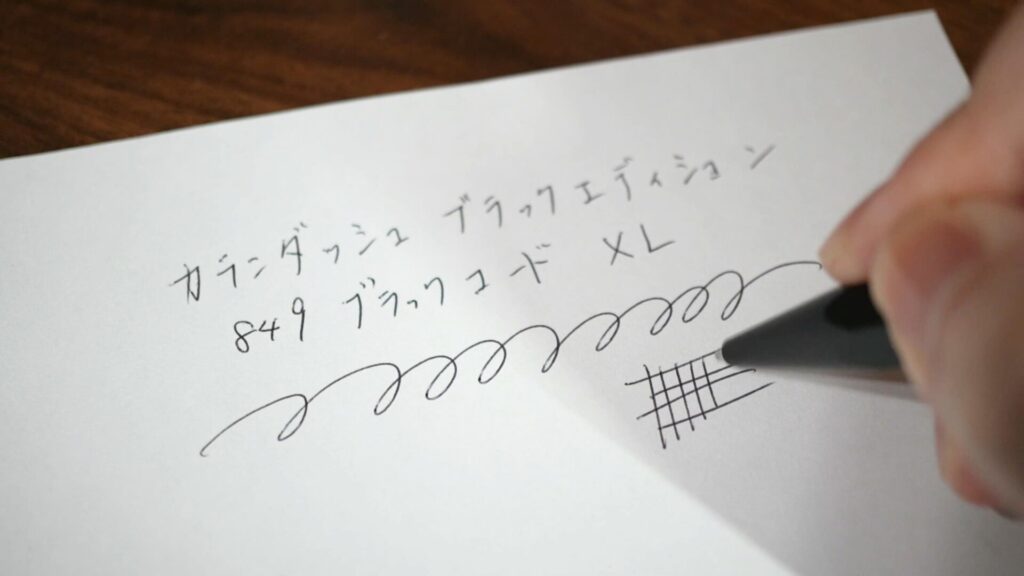 カランダッシュ ブラックエディション
849 ブラックコード XL